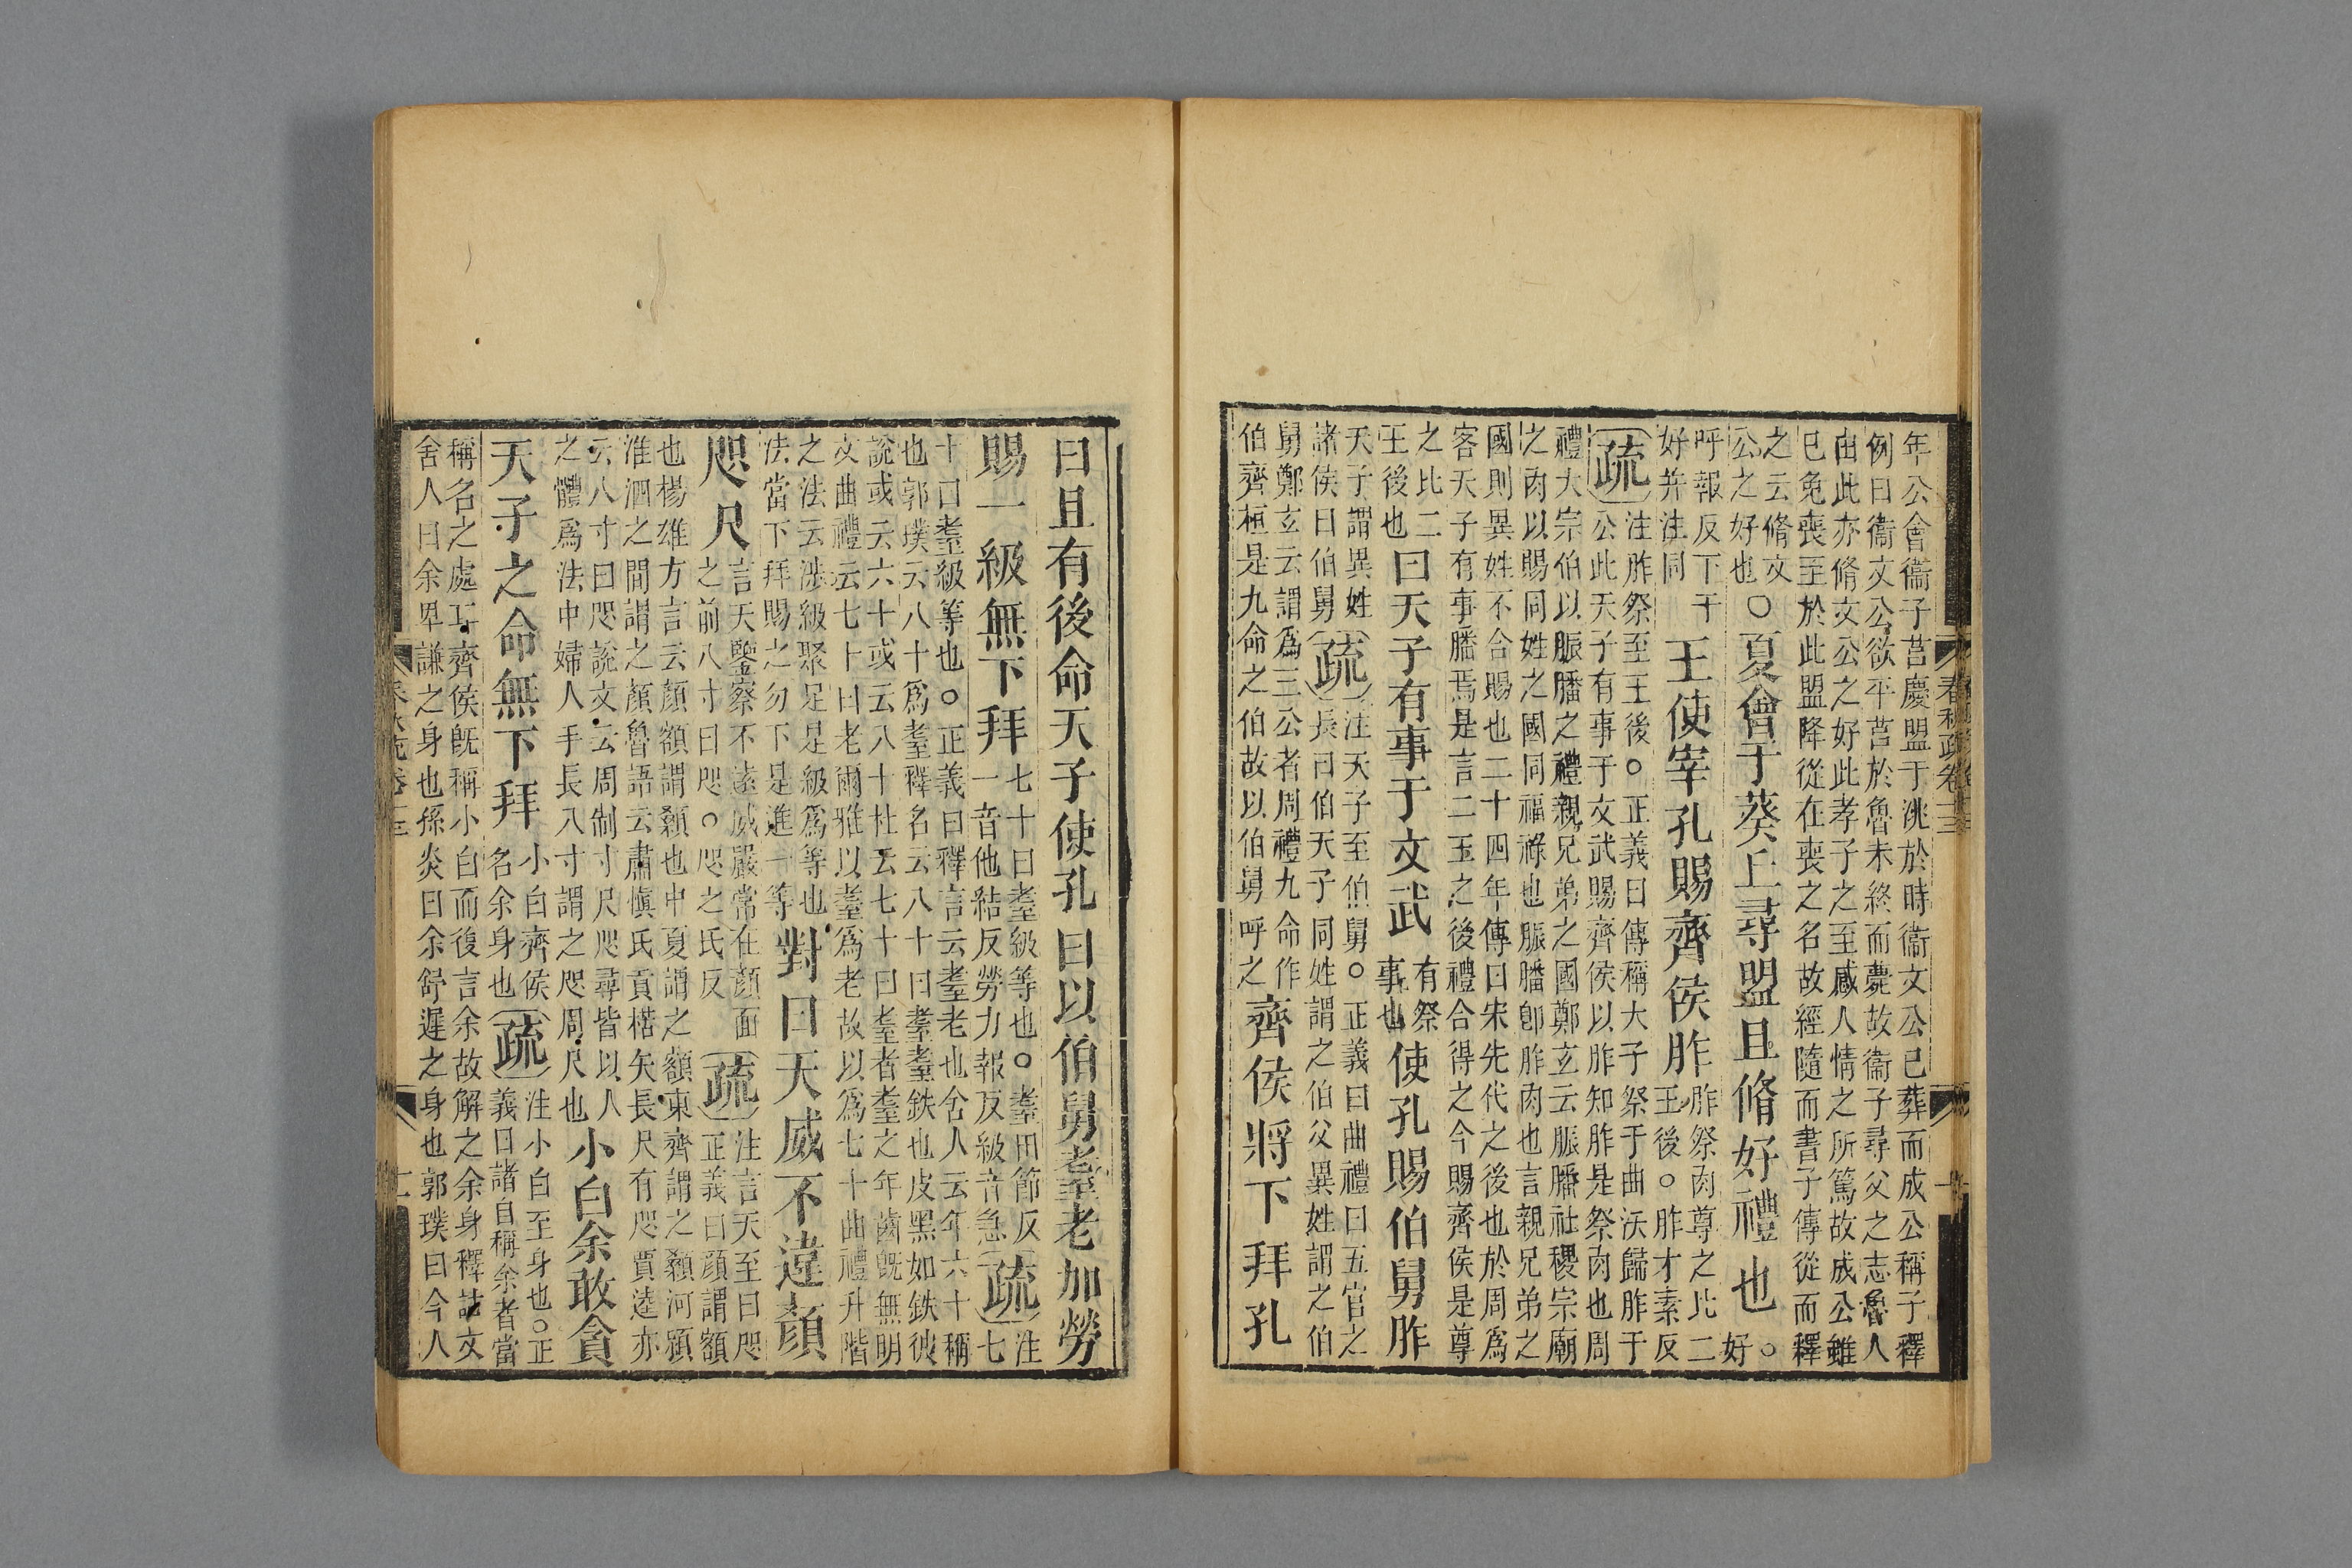 春秋疏卷十三
年公會衞子莒慶盟于洮於時衞文公已葬而成公稱子釋
例曰衞文公欲平莒於魯未終而薨故衞子尋父之志魯人
由此亦脩文公之好此孝子之至感人情之所篤故成公雖
已免喪至於此盟降從在喪之名故經隨而書子傳從而釋
之云脩文公之好也○夏會于葵丘尋盟且脩好禮也○好
呼報反下于好并注同王使宰孔賜齊侯胙胙祭肉尊之比二王後○胙才素反
疏注胙祭至王後○正義曰傳稱大子祭于曲沃歸胙于
公此天子有事于文武賜齊侯以胙知胙是祭肉也周
禮大宗伯以脤膰之禮親兄弟之國鄭玄云脤膰社稷宗廟
之肉以賜同姓之國同福祿也脤膰卽胙肉也言親兄弟之
國則異姓不合賜也二十四年傳曰宋先代之後也於周爲
客天子有事膰焉是言二王之後禮合得之今賜齊侯是尊
之比二王後也曰天子有事于文武有祭事也使孔賜伯舅胙
天子謂異姓諸侯曰伯舅疏注天子至伯舅○正義曰曲禮曰五官之長曰伯天子同姓謂之伯父異姓謂之伯
舅鄭玄云謂爲三公者周禮九命作伯齊桓是九命之伯故以伯舅呼之齊侯將下拜孔
曰且有後命天子使孔曰以伯舅耋老加勞
賜一級無下拜七十曰耋級等也○耋田節反一音他結反勞力報反級音急疏注七
十曰耋級等也○正義曰釋言云耋老也舍人云年六十稱
也郭璞云八十爲耋釋名云八十曰耋耋鉄也皮黑如鉄彼
說或云六十或云八十杜云七十曰耋者耋之年齒旣無明
文曲禮云七十曰老爾雅以耋爲老故以爲七十曲禮升階
之法云涉級聚足足是級爲等也
法當下拜賜之勿下是進一等對曰天威不違顏
咫尺言天鑒察不遠威嚴常在顏面之前八寸曰咫○咫之氏反疏注言天至曰咫正義曰顏謂額
也楊雄方言云顏額謂顙也中夏謂之額東齊謂之顙河潁
淮泗之間謂之顏魯語云肅愼氏貢楛矢長尺有咫賈逵亦
云八寸曰咫說文云周制寸尺咫尋皆以人
之體爲法中婦人手長八寸謂之咫周尺也小白余敢貪
天子之命無下拜小白齊侯名余身也疏注小白至身也○正義曰諸自稱余者當
稱名之處耳齊侯旣稱小白而復言余故解之余身釋詁文
舍人曰余卑謙之身也孫炎曰余舒遲之身也郭璞曰今人